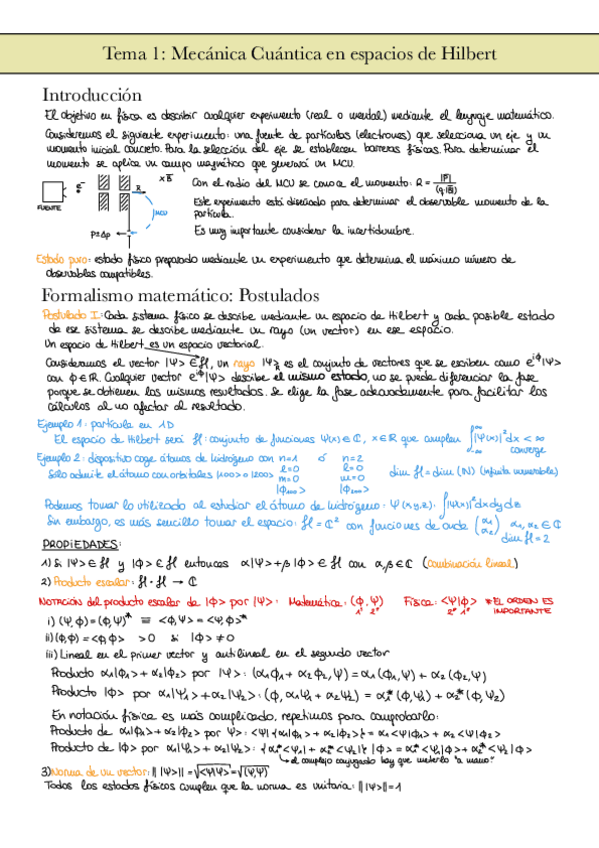 Tema 1: Mecánica Cuántica en espacios de Hilbert
Introducción
El objetivo en física es describir cualquier experimento (real o mental) mediante el lenguaje matemático.
Consideremos el siguiente experimento: una fuente de partículas (electrones) que selecciona un eje y un
momento inicial concreto. Para la selección del eje se establecen barreras físicas. Para determinar el
momento se aplica un campo magnético que generará un MCU.
FUENTE
e⁻
R
x B⃗
MCU
p±Δp
Con el radio del MCU se conoce el momento: R = |P⃗| / (q·|B⃗|)
Este experimento está diseñado para determinar el observable momento de la
partícula.
Es muy importante considerar la incertidumbre.
Estado puro: estado físico preparado mediante un experimento que determina el máximo número de
observables compatibles.
Formalismo matemático: Postulados
Postulado I: Cada sistema físico se describe mediante un espacio de Hilbert y cada posible estado
de ese sistema se describe mediante un rayo (un vector) en ese espacio.
Un espacio de Hilbert es un espacio vectorial.
Consideremos el vector |Ψ> ∈ ℋ, un rayo |Ψ>_R es el conjunto de vectores que se escriben como e^{iϕ}|Ψ>
con ϕ∈ℝ. Cualquier vector e^{iϕ}|Ψ> describe el mismo estado, no se puede diferenciar la fase
porque se obtienen los mismos resultados. Se elige la fase adecuadamente para facilitar los
cálculos al no afectar al resultado.
Ejemplo 1: partícula en 1D
El espacio de Hilbert será ℋ: conjunto de funciones Ψ(x)∈ℂ, x∈ℝ que cumplen ∫_{-∞}^{∞}|Ψ(x)|²dx < ∞
converge
Ejemplo 2: dispositivo coge átomos de hidrógeno con n=1 ó n=2
Sólo admite el átomo con orbitales |100> o |200> l=0 l=0 dim ℋ = dim (ℕ) (infinita numerable)
m=0 m=0
|ϕ₁₀₀> |ϕ₂₀₀>
Podemos tomar lo utilizado al estudiar el átomo de hidrógeno: Ψ(x,y,z): ∫|Ψ(x)|²dxdydz
Sin embargo, es más sencillo tomar el espacio: ℋ = ℂ² con funciones de onda (α₁ α₂) α₁, α₂ ∈ ℂ
dim ℋ = 2
PROPIEDADES:
1) Si |Ψ>∈ℋ y |ϕ>∈ℋ entonces α|Ψ>+β|ϕ>∈ℋ con α,β∈ℂ (Combinación lineal)
2) Producto escalar: ℋ·ℋ → ℂ
NOTACIÓN del producto escalar de |ϕ> por |Ψ>: Matemática: (ϕ,Ψ) Física: <Ψ|ϕ> *EL ORDEN ES
1º 2º 2º 1º IMPORTANTE
i) (Ψ,ϕ) = (ϕ,Ψ)* ≡ <ϕ,Ψ> = <Ψ,ϕ>*
ii) (ϕ,ϕ) = <ϕ,ϕ> > 0 si |ϕ> ≠ 0
iii) Lineal en el primer vector y antilineal en el segundo vector
Producto α₁|ϕ₁>+α₂|ϕ₂> por |Ψ>: (α₁ϕ₁+α₂ϕ₂,Ψ) = α₁(ϕ₁,Ψ) + α₂(ϕ₂,Ψ)
Producto |ϕ> por α₁|Ψ₁>+α₂|Ψ₂>: (ϕ, α₁Ψ₁+α₂Ψ₂) = α₁*(ϕ,Ψ₁) + α₂*(ϕ,Ψ₂)
En notación física es más complicado, repetimos para comprobarlo:
Producto de α₁|ϕ₁>+α₂|ϕ₂> por Ψ>: <Ψ|{α₁|ϕ₁>+α₂|ϕ₂>} = α₁<Ψ|ϕ₁>+α₂<Ψ|ϕ₂>
Producto de |ϕ> por α₁|Ψ₁>+α₂|Ψ₂>: {α₁*<Ψ₁|+α₂*<Ψ₂|}|ϕ> = α₁*<Ψ₁|ϕ>+α₂*<Ψ₂|ϕ>
el complejo conjugado hay que meterlo "a mano"
3) Norma de un vector: || |Ψ> || = √<Ψ|Ψ> = √(Ψ,Ψ)
Todos los estados físicos cumplen que la norma es unitaria: || |Ψ> || = 1